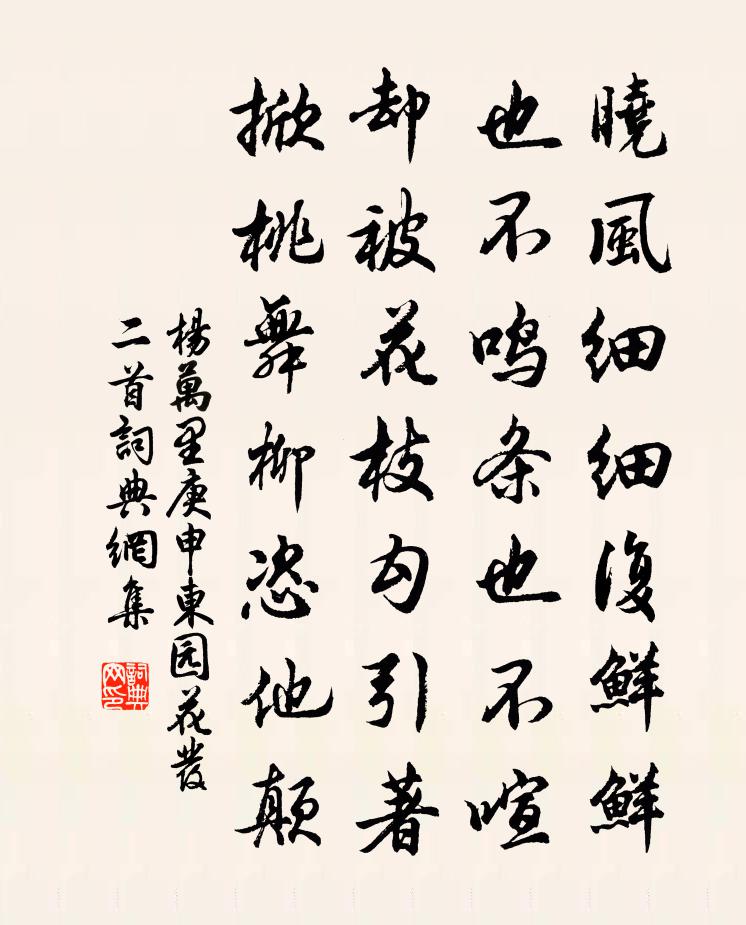 曉風细细復鮮鮮
也不鸣条也不喧
却被花枝勾引著
掀桃舞柳恣他颠
楊萬里庚申東园花發
二首詞典網集
詞典网印